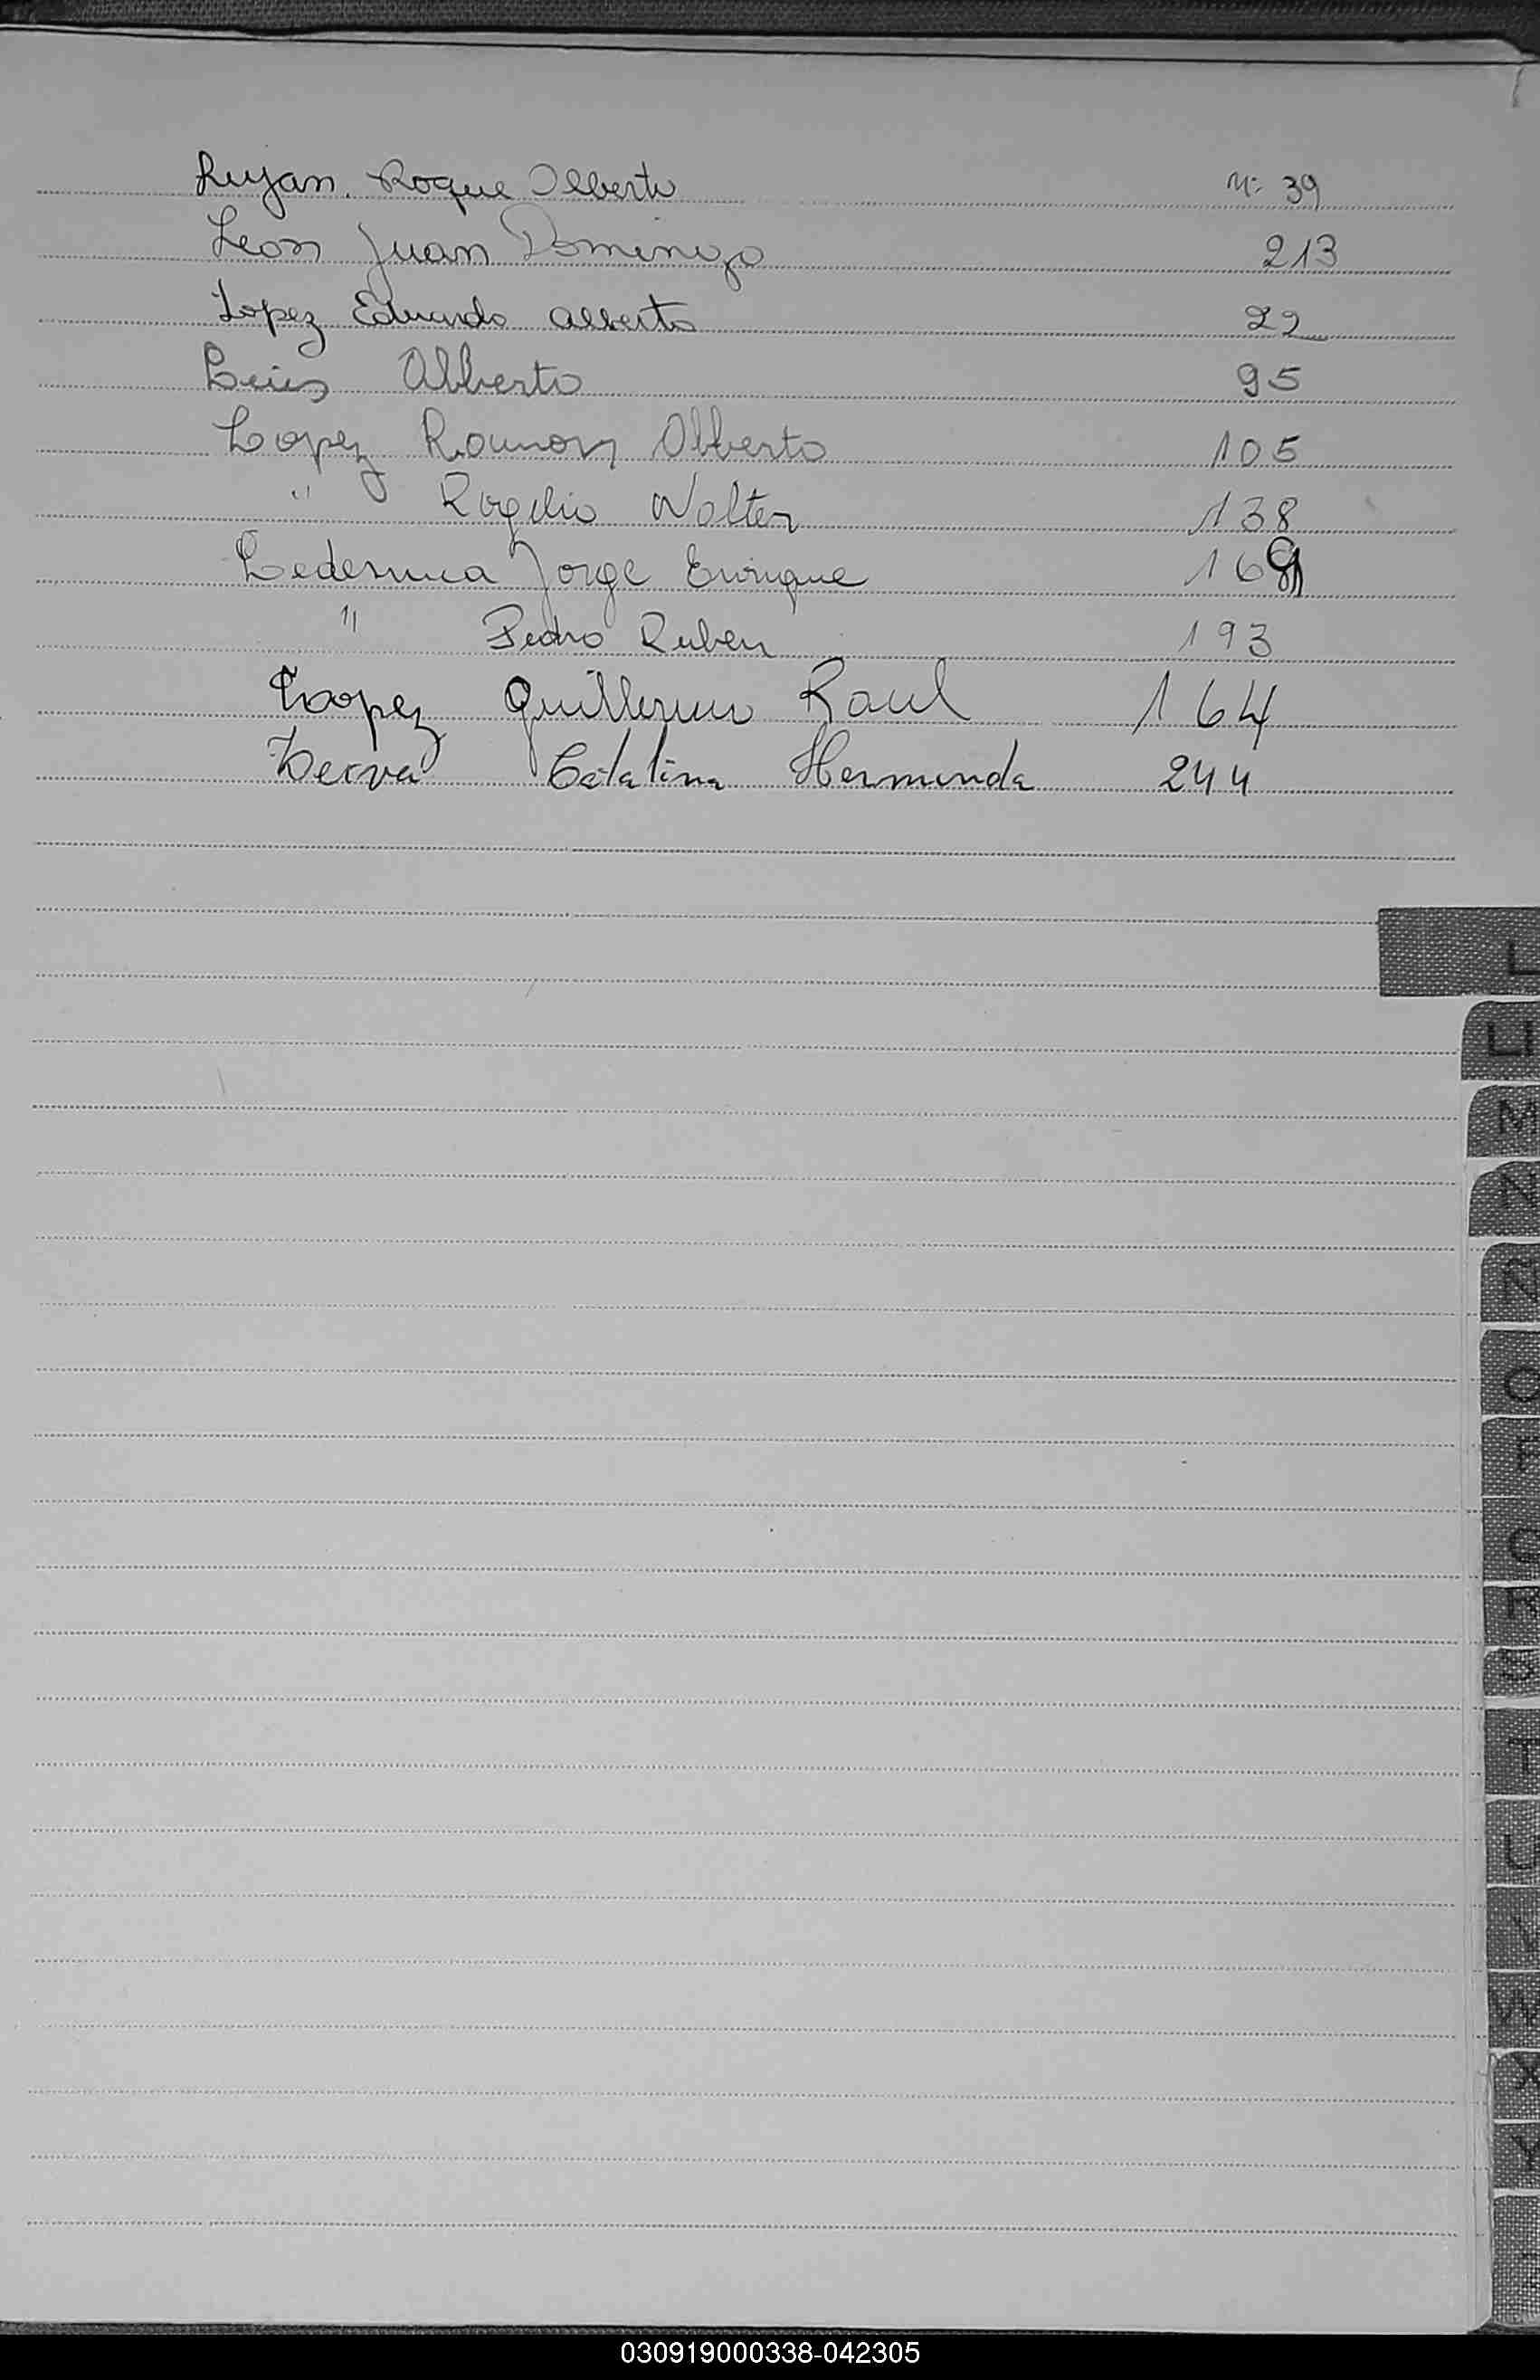 Lujan. Roque Alberto Nº 39
Leon Juan Domingo 213
Lopez Eduardo Alberto 22
Leies Alberto 95
Lopez Ramon Alberto 105
" Rogelio Walter 138
Ledesma Jorge Enrique 169
" Pedro Ruben 193
Lopez Guillermo Raul 164
Lerva Catalina Herminda 244
L
LL
M
N
Ñ
O
P
Q
R
S
T
U
V
W
X
Y
030919000338-042305